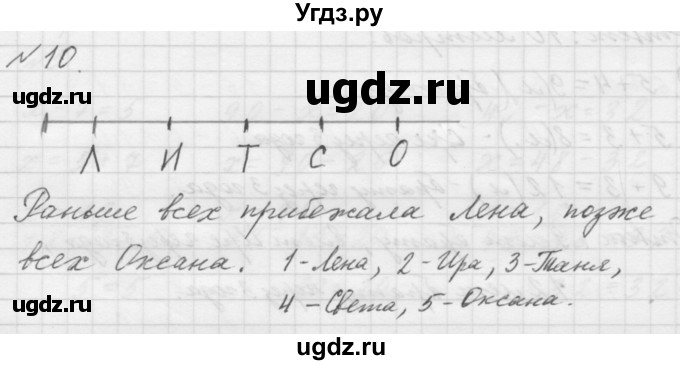 Угдз.ру
№10.
ugdz.ru
ugdz.ru
ugdz.ru
Л И Т С О
Раньше всех прибежала Лена, позже
всех Оксана. 1-Лена, 2-Ира, 3-Таня,
ugdz.ru
ugdz.ru
4-Света, 5-Оксана.
ugdz.ru